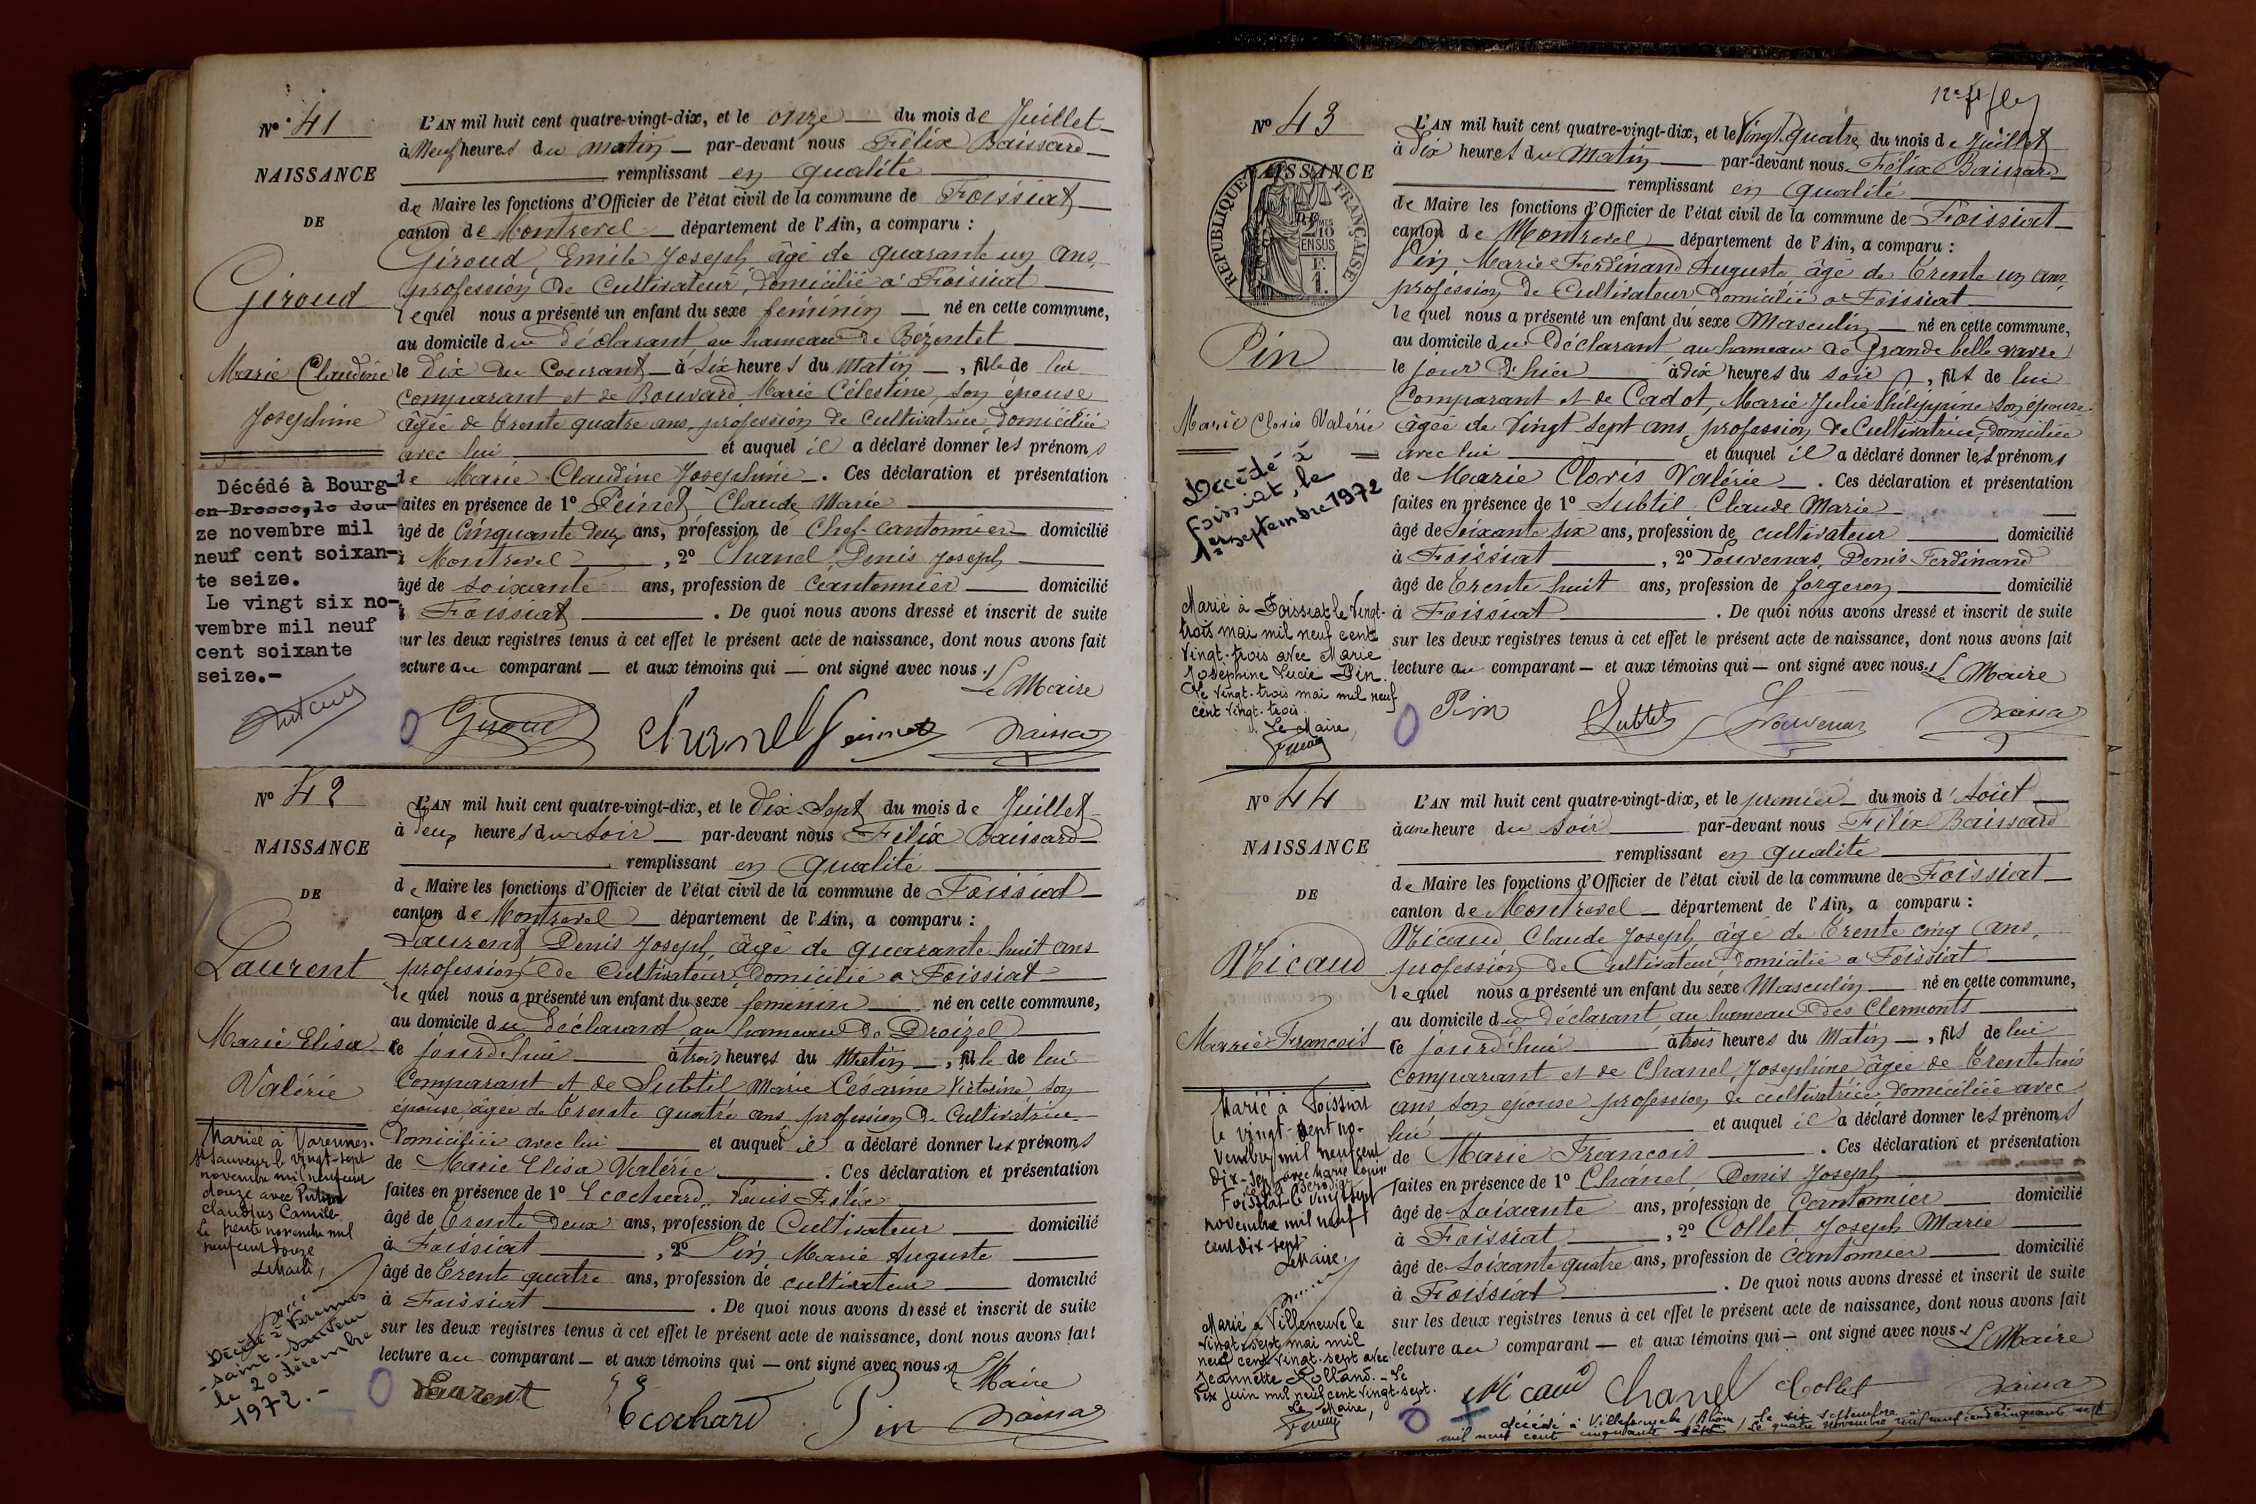 Nº 41
NAISSANCE
DE
Giroud
Marie Claudine
Joséphine
Décédé à Bourg-
en-Bresse, le dou-
ze novembre mil
neuf cent soixan-
te seize.
Le vingt six no-
vembre mil neuf
cent soixante
seize.-
L'AN mil huit cent quatre-vingt-dix, et le onze du mois de Juillet
à Neuf heures du matin par-devant nous Félix Baissard
remplissant en qualité
de Maire les fonctions d'Officier de l'état civil de la commune de Foissiat
canton de Montrevel département de l'Ain, a comparu :
Giroud, Emile Joseph âgé de quarante un ans,
profession de Cultivateur, domicilié à Foissiat
lequel nous a présenté un enfant du sexe féminin né en cette commune,
au domicile du déclarant au hameau de Bézentet
le dix du Courant à six heures du Matin, fille de lui
comparant et de Bouvard Marie Célestine, son épouse
âgée de trente quatre ans, profession de cultivatrice, domiciliée
avec lui et auquel il a déclaré donner les prénoms
de Marie Claudine Joséphine. Ces déclaration et présentation
faites en présence de 1º Peinet Claude Marie
âgé de Cinquante deux ans, profession de Chef cantonnier domicilié
à Montrevel, 2º Chanel, Denis Joseph
âgé de soixante ans, profession de cantonnier domicilié
à Foissiat. De quoi nous avons dressé et inscrit de suite
sur les deux registres tenus à cet effet le présent acte de naissance, dont nous avons fait
lecture au comparant et aux témoins qui ont signé avec nous.
Le Maire
Giroud Chanel Peinet Baissard
Nº 42
NAISSANCE
DE
Laurent
Marie Elisa
Valérie
Mariée à Varennes-
St Sauveur le vingt-sept
novembre mil neuf cent
douze avec
Claudius Camille
Le trente novembre mil
neuf cent douze
Le Maire,
Décédée à Varennes
-saint-Sauveur
le 20 décembre
1972.-
L'AN mil huit cent quatre-vingt-dix, et le Dix Sept du mois de Juillet
à deux heures du soir par-devant nous Félix Baissard
remplissant en qualité
de Maire les fonctions d'Officier de l'état civil de la commune de Foissiat
canton de Montrevel département de l'Ain, a comparu :
Laurent Denis Joseph, âgé de quarante huit ans
profession de Cultivateur, domicilié à Foissiat
lequel nous a présenté un enfant du sexe féminin né en cette commune,
au domicile du déclarant au hameau de Droizel
ce jourd'hui à trois heures du Matin, fille de lui
Comparant et de Subtil Marie Césarine Victorine son
épouse âgée de trente quatre ans, profession de Cultivatrice
domiciliée avec lui et auquel il a déclaré donner les prénoms
de Marie Elisa Valérie. Ces déclaration et présentation
faites en présence de 1º Ecochard, Louis Félix
âgé de trente deux ans, profession de Cultivateur domicilié
à Foissiat, 2º Pin Marie Auguste
âgé de trente quatre ans, profession de cultivateur domicilié
à Foissiat. De quoi nous avons dressé et inscrit de suite
sur les deux registres tenus à cet effet le présent acte de naissance, dont nous avons fait
lecture au comparant et aux témoins qui ont signé avec nous.
Le Maire
Laurent Ecochard Pin Baissard
Nº 43
NAISSANCE
RÉPUBLIQUE FRANÇAISE
2/10
EN SUS
F.
1.
Pin
Marie Clovis Valérie
Décédé à
Foissiat, le
1er septembre 1972
Marié à Foissiat le Vingt-
trois mai mil neuf cent
Vingt-trois avec Marie
Joséphine Lucie Pin.
Le Vingt-trois mai mil neuf
cent vingt-trois
Le Maire,
L'AN mil huit cent quatre-vingt-dix, et le Vingt quatre du mois de Juillet
à dix heures du Matin par-devant nous Félix Baissard
remplissant en qualité
de Maire les fonctions d'Officier de l'état civil de la commune de Foissiat
canton de Montrevel département de l'Ain, a comparu :
Pin Marie Ferdinand Auguste âgé de trente un ans
profession de Cultivateur domicilié à Foissiat
lequel nous a présenté un enfant du sexe Masculin né en cette commune,
au domicile du déclarant au hameau de Grande belle vavre
le jour d'hier à dix heures du soir, fils de lui
Comparant et de Cadot, Marie Julie Philippine son épouse
âgée de Vingt sept ans, profession de Cultivatrice, domiciliée
avec lui et auquel il a déclaré donner les prénoms
de Marie Clovis Valérie. Ces déclaration et présentation
faites en présence de 1º Subtil Claude Marie
âgé de Soixante six ans, profession de cultivateur domicilié
à Foissiat, 2º Touvenas, Denis Ferdinand
âgé de trente huit ans, profession de forgeron domicilié
à Foissiat. De quoi nous avons dressé et inscrit de suite
sur les deux registres tenus à cet effet le présent acte de naissance, dont nous avons fait
lecture au comparant et aux témoins qui ont signé avec nous.
Le Maire
Pin Subtil Touvenas Baissard
Nº 44
NAISSANCE
DE
Micaud
Marie François
Marié à Foissiat
le vingt-sept no-
vembre mil neuf cent
dix-sept avec Marie
Foissiat le vingt sept
novembre mil neuf
cent dix sept
Le Maire,
Marié à Villeneuve le
vingt-sept mai mil
neuf cent vingt-sept avec
Jeannette Rolland. - Le
dix juin mil neuf cent vingt-sept.
Le Maire,
L'AN mil huit cent quatre-vingt-dix, et le premier du mois d'Août
à une heure du soir par-devant nous Félix Baissard
remplissant en qualité
de Maire les fonctions d'Officier de l'état civil de la commune de Foissiat
canton de Montrevel département de l'Ain, a comparu :
Micaud Claude Joseph âgé de trente cinq ans,
profession de Cultivateur domicilié à Foissiat
lequel nous a présenté un enfant du sexe Masculin né en cette commune,
au domicile du déclarant au hameau des Clermonts
ce jourd'hui à trois heures du Matin, fils de lui
comparant et de Chanel, Joséphine âgée de trente trois
ans son épouse profession de cultivatrice domiciliée avec
lui et auquel il a déclaré donner les prénoms
de Marie François. Ces déclaration et présentation
faites en présence de 1º Chanel, Denis Joseph
âgé de Soixante ans, profession de Cantonnier domicilié
à Foissiat, 2º Collet Joseph Marie
âgé de soixante quatre ans, profession de cantonnier domicilié
à Foissiat. De quoi nous avons dressé et inscrit de suite
sur les deux registres tenus à cet effet le présent acte de naissance, dont nous avons fait
lecture au comparant et aux témoins qui ont signé avec nous.
Le Maire
Micaud Chanel Collet Baissard
décédé à Villefranche (Rhône) le six septembre
mil neuf cent cinquante sept / Le quatre novembre mil neuf cent cinquante sept